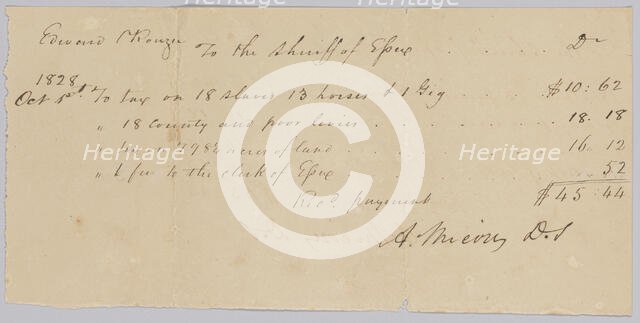 Edward Rouzee To the Sheriff of Essex Dr
1828
Oct 5th To tax on 18 slaves 13 horses & 1 Gig $10:62
" 18 county and poor levies 18.18
" acres of land 16.12
" 1 fee to the clerk of Essex .. 52
Recd. payment $45:44
A. Micou D.S
Heritage Heritage Heritage
Heritage Heritage Heritage
©